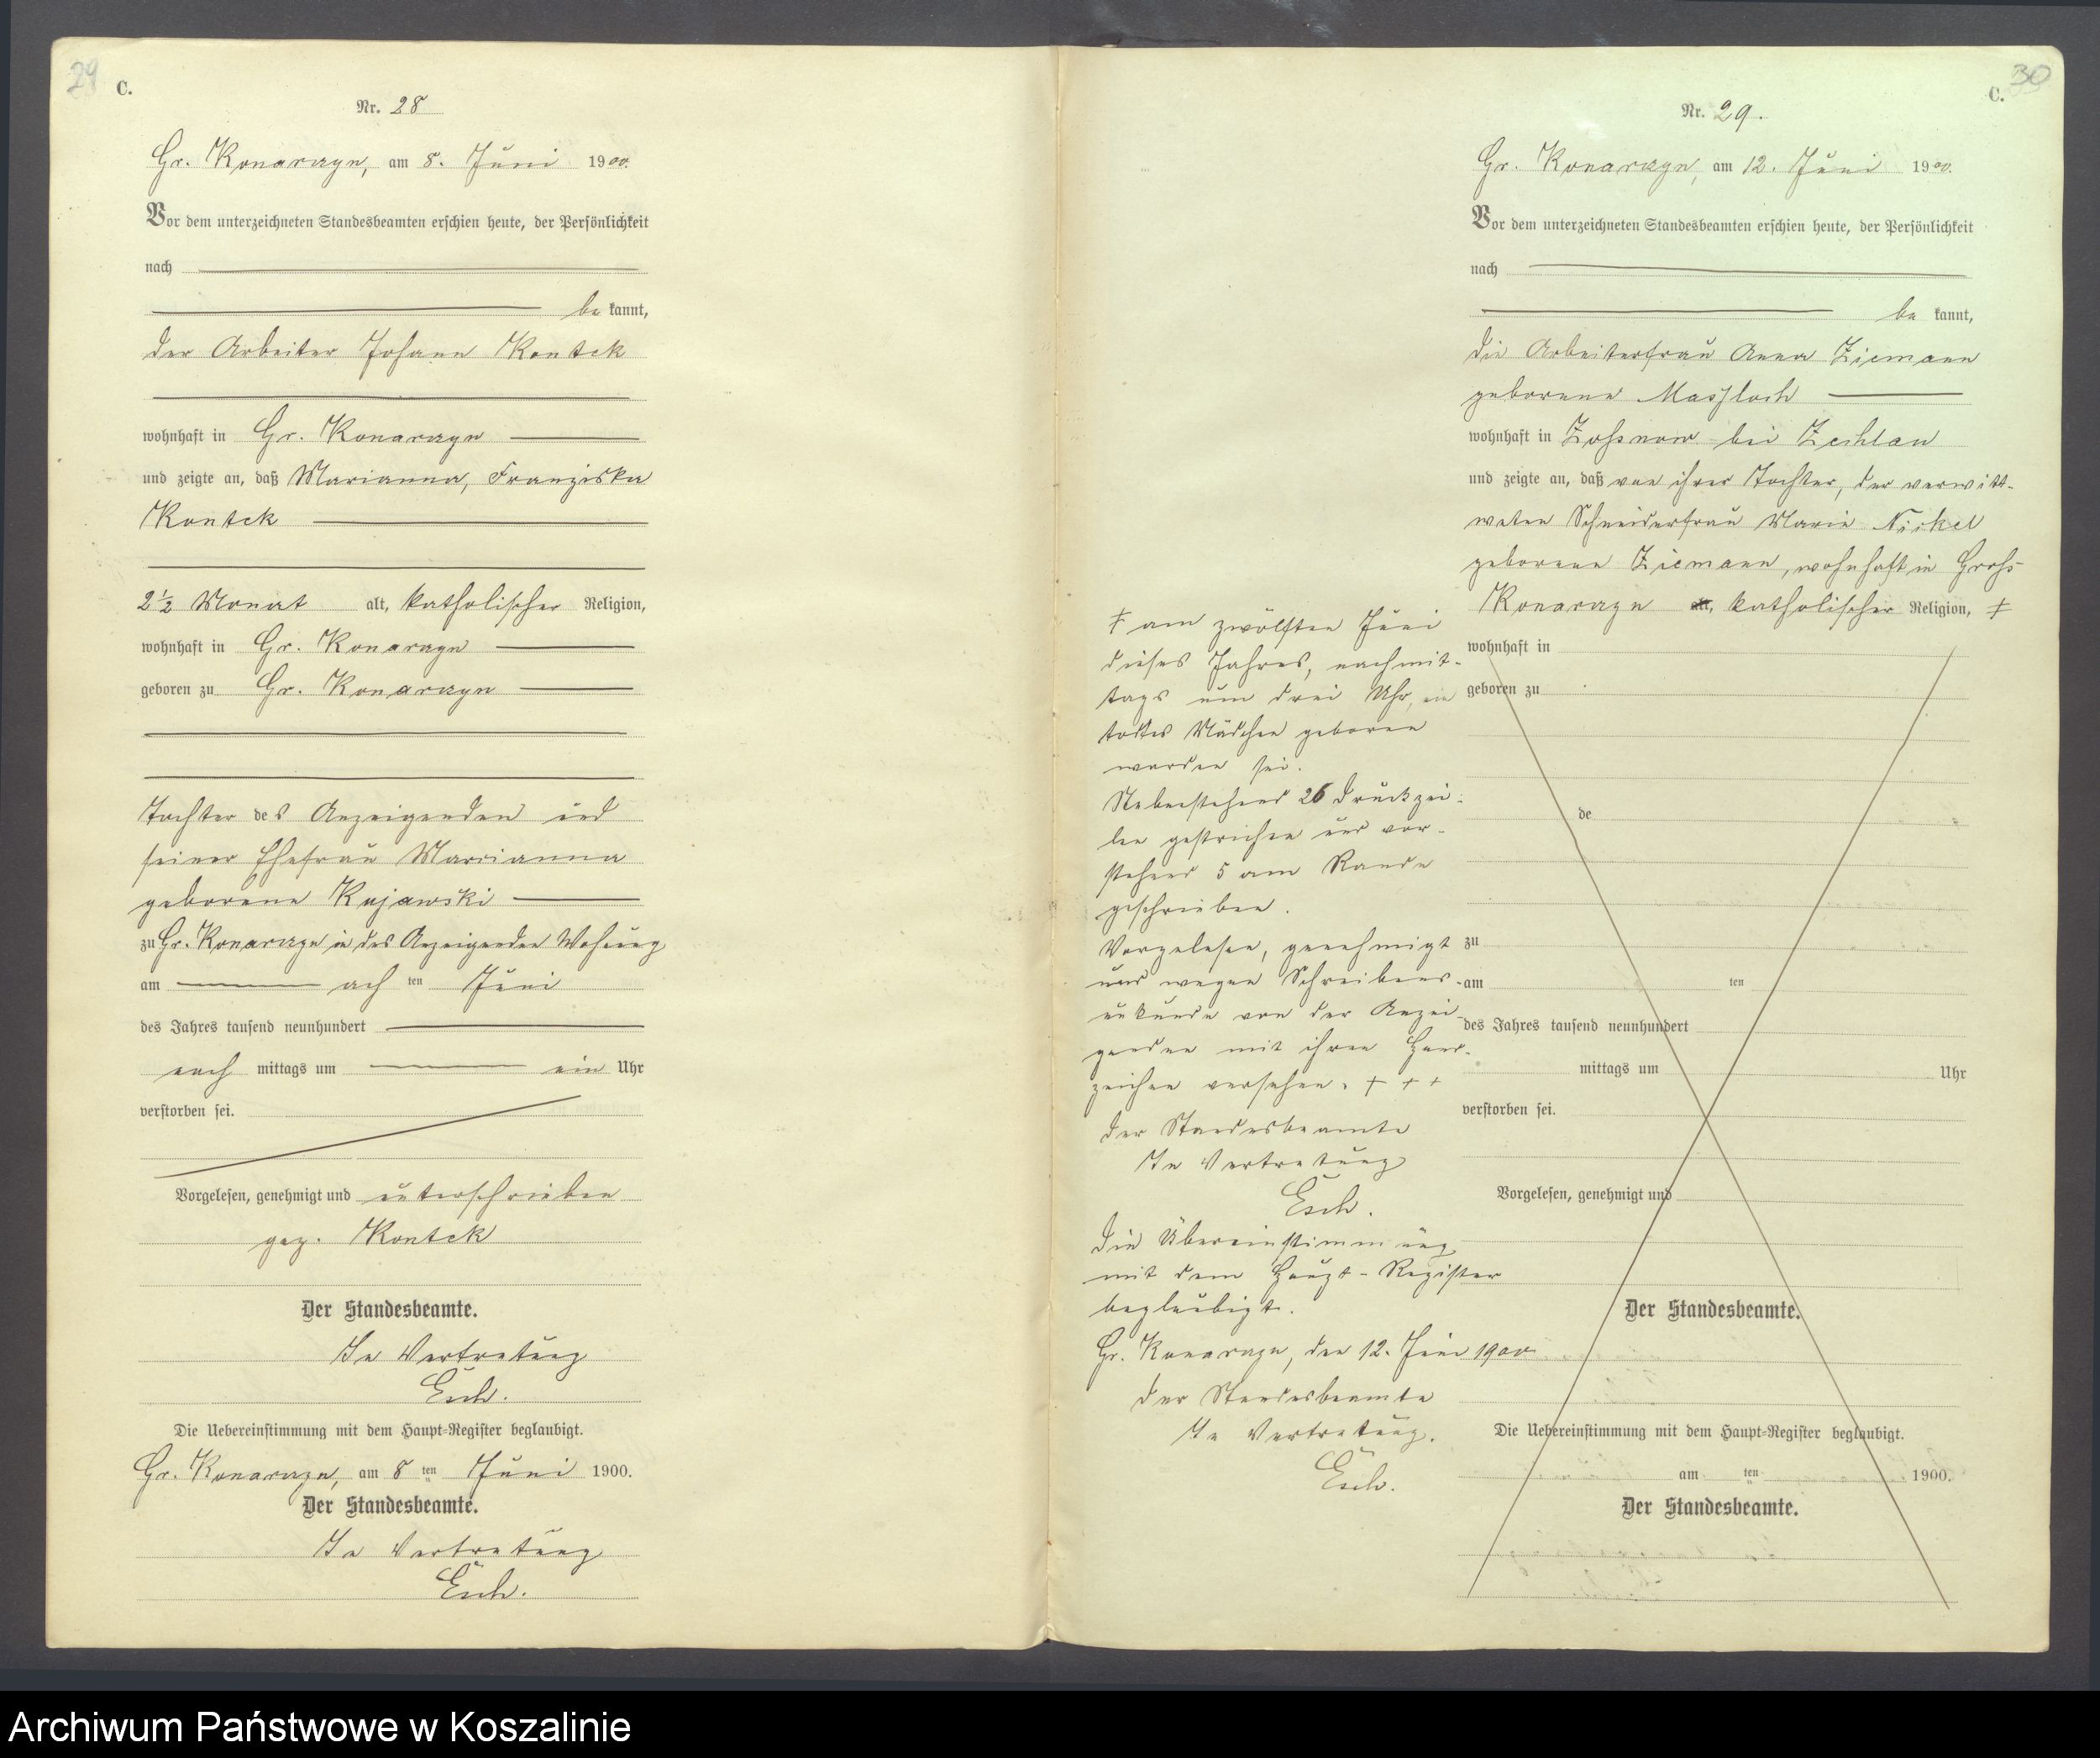 29
C.
Nr. 28
Gr. Konarczyn, am 8. Juni 1900.
Vor dem unterzeichneten Standesbeamten erschien heute, der Persönlichkeit
nach
be kannt,
der Arbeiter Johann Kontek
wohnhaft in Gr. Konarczyn
und zeigte an, daß Marianna, Franziska
Kontek
2 1/2 Monat alt, katholischer Religion,
wohnhaft in Gr. Konarczyn
geboren zu Gr. Konarczyn
Tochter des Anzeigenden und
seiner Ehefrau Marianna
geborene Kujawski
zu Gr. Konarczyn in des Anzeigenden Wohnung
am ach ten Juni
des Jahres tausend neunhundert
nach mittags um ein Uhr
verstorben sei.
Vorgelesen, genehmigt und unterschrieben
gez. Kontek
Der Standesbeamte.
In Vertretung
Esch.
Die Uebereinstimmung mit dem Haupt-Register beglaubigt.
Gr. Konarczyn, am 8 ten Juni 1900.
Der Standesbeamte.
In Vertretung
Esch.
30
C.
Nr. 29.
Gr. Konarczyn, am 12. Juni 1900.
Vor dem unterzeichneten Standesbeamten erschien heute, der Persönlichkeit
nach
be kannt,
die Arbeiterfrau Anna Ziemann
geborene
wohnhaft in bei Zechlau
und zeigte an, daß von ihrer Tochter, der verwitt-
weten Schneiderfrau Marie Nickel
geborene Ziemann, wohnhaft in Groß
Konarczyn alt, katholischer Religion, ‡
‡ am zwölften Juni
dieses Jahres, nachmit-
tags um drei Uhr, ein
todtes Mädchen geboren
worden sei.
Nebenstehend 26 Druckzei-
len gestrichen und vor-
stehend 5 am Rande
geschrieben.
Vorgelesen, genehmigt
und wegen Schreibens-
unkunde von der Anzei-
genden mit ihren Hand-
zeichen versehen. + + +
Der Standesbeamte
In Vertretung
Esch.
Die Übereinstimmung
mit dem Haupt-Register
beglaubigt.
Gr. Konarczyn, den 12. Juni 1900
Der Standesbeamte
In Vertretung.
Esch.
wohnhaft in
geboren zu
de
zu
am ten
des Jahres tausend neunhundert
mittags um Uhr
verstorben sei.
Vorgelesen, genehmigt und
Der Standesbeamte.
Die Uebereinstimmung mit dem Haupt-Register beglaubigt.
am ten 1900.
Der Standesbeamte.
Archiwum Państwowe w Koszalinie